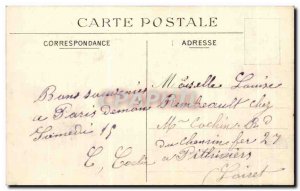 CARTE POSTALE
CORRESPONDANCE
ADRESSE
Bons souvenirs
à Paris demain
Samedi 18
Melle Louise
chez
Mr Cochin R D
du Chemin fer 27
à Pithiviers
Loiret